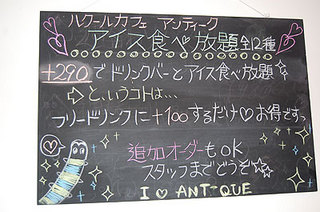 ハクールカフェ アンティーク
アイス食べ放題全12種
+290でドリンクバーとアイス食べ放題☆
⇨というコトは…
フリードリンクに+100するだけ♡お得ですっ
追加オーダーもOK
スタッフまでどうぞ☆☆
I ♡ ANTIQUE